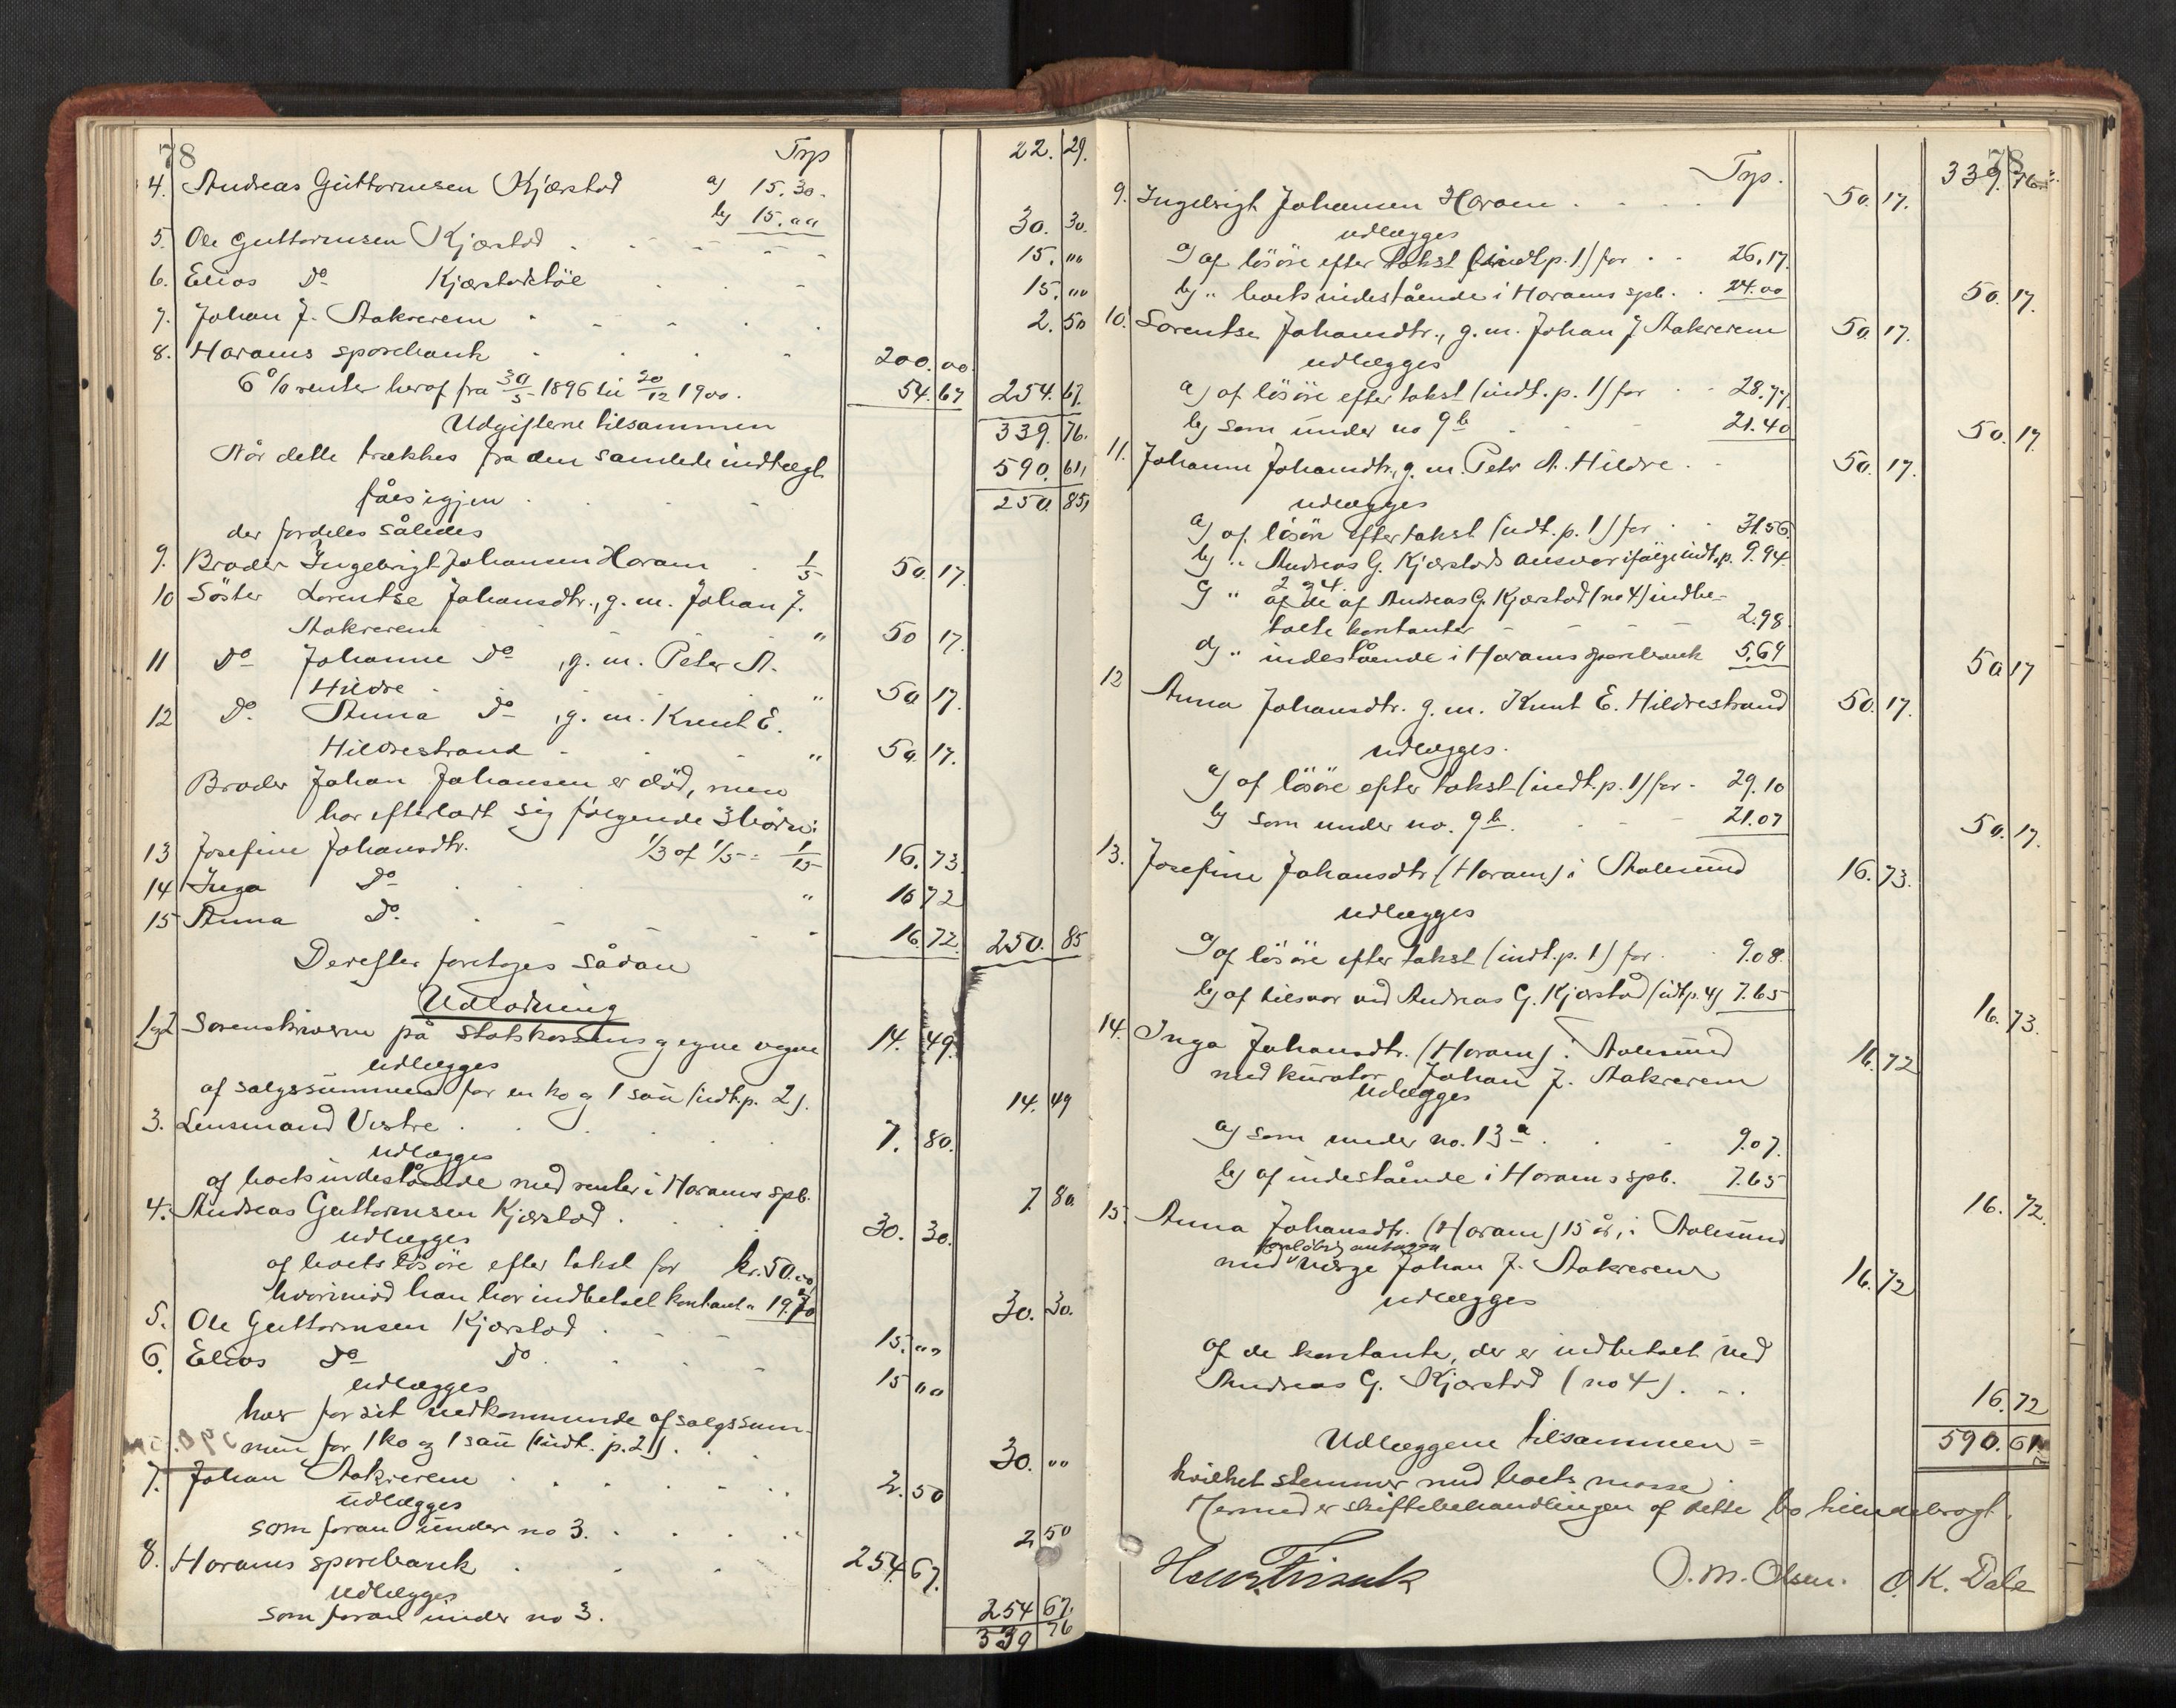 78
Trp 22. 29.
4. Andreas Guttormsen Kjærstad a) 15.30.
b) 15.00 30. 30.
5. Ole Guttormsen Kjærstad 15. "
6. Elias Do Kjærstadstöl 15. "
7. Johan J. Aakrerem 2. 50
8. Harams sparebank 200. 00
6 % renter heraf fra 30/5 1896 til 20/12 1900. 54. 67 254. 67.
Udgifterne tilsammen 339. 76.
Når dette trækkes fra den samlede indtægt 590. 61,
fåes igjen 250. 85,
der fordeles således
9. Broder Ingebrigt Johansen Haram 1/5 50. 17.
10 Söster Lorentse Johansdtr., g. m. Johan J.
Aakrerem " 50 17.
11 Do Johanne Do , g. m. Peter A.
Hildre " 50 17.
12 Do. Anna Do , g. m. Knut E.
Hildrestrand " 50. 17.
Broder Johan Johansen er död, men
har efterladt sig fölgende 3 börn:
13 Josefine Johansdtr. 1/3 af 1/5 = 1/15 16. 73
14 Inga Do " 16 72
15 Anna Do. 16. 72. 250. 85
Derefter foretoges sådan
Udlodning
1&2 Sorenskriveren på statskassens & egne vegne 14. 49.
udlægges
af salgssummen for en ko og 1 sau (indt. p. 2). 14. 49
3. Lensmand Vestre 7. 80.
udlægges
af boets indestående med renter i Harams spb. 7. 80
4. Andreas Guttormsen Kjærstad 30. 30.
udlægges
af boets lösöre efter takst for kr. 50.00
hvorimod han har indbetalt kontant " 19.70 30. 30.
5. Ole Guttormsen Kjærstad 15. "
6. Elias Do Do 15 00
udlægges
hver for sit vedkommende af salgssum-
men for 1 ko og 1 sau (indt. p. 2). 30. "
7. Johan Aakrerem 2. 50
udlægges
som foran under no 3. 2 50
8. Harams sparebank 254. 67.
udlægges
som foran under no 3. 254 67.
339 76
78
Trp. 339. 76
9. Ingebrigt Johansen Haram 50. 17.
udlægges
a) af lösöre efter takst (indt. p. 1) for 26.17.
b) " boets indestående i Harams spb. 24.00 50. 17.
10. Lorentse Johansdtr., g. m. Johan J Aakrerem 50. 17.
udlægges
a) af lösöre efter takst (indt. p. 1) for 28.77.
b) som under no 9 b 21.40 50. 17
11. Johanne Johansdtr., g. m. Peter A. Hildre 50. 17.
udlægges
a) af lösöre efter takst (indt. p. 1) for 31.56
b) " Andreas G. Kjærstads ansvar ifölge indt. p. 9.94.
2 & 4.
c) " af de af Andreas G. Kjærstad (no 4) indbe-
talte kontanter 2.98
d) " indestående i Harams sparebank 5.69 50 17
12 Anna Johansdtr. g. m. Knut E. Hildrestrand 50. 17.
udlægges.
a) af lösöre efter takst (indt. p. 1) for 29.10
b) som under no. 9 b. 21.07 50. 17.
13. Josefine Johansdtr (Haram) i Aalesund 16. 73.
udlægges
a) af lösöre efter takst (indt. p. 1) for 9.08.
b) af tilsvar ved Andreas G. Kjærstad (idt. p. 4) 7.65 16. 73.
14. Inga Johansdtr. (Haram) i Aalesund 16. 72
med kurator Johan J. Aakrerem
udlægges
a) som under no. 13 a 9.07.
b) af indestående i Harams spb. 7.65 16. 72.
15. Anna Johansdtr. (Haram) 15 år, i Aalesund
foreløbig antagen
med værge Johan J. Aakrerem 16. 72
udlægges
af de kontante, der er indbetalt ved
Andreas G. Kjærstad (no 4). 16. 72
Udlæggene tilsammen = 590. 61
hvilket stemmer med boets masse.
Hermed er skiftebehandlingen af dette bo tilendebragt.
O. M. Olsen. O. K. Dale